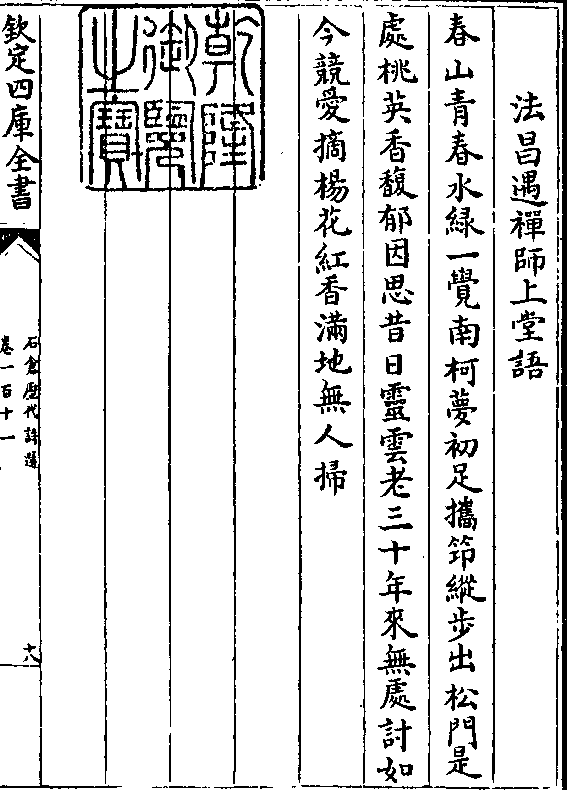 法昌遇禪師上堂語
春山青春水綠一覺南柯夢初足攜笻縱步出松門是
處桃英香馥郁因思昔日靈雲老三十年來無處討如
今競愛摘楊花紅香滿地無人掃
乾隆御覽之寶
欽定四庫全書
石倉歷代詩選
卷一百十一
十八